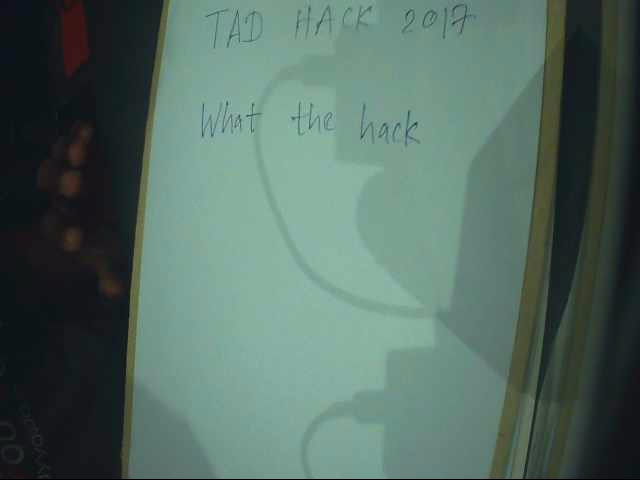 TAD HACK 2017
What the hack